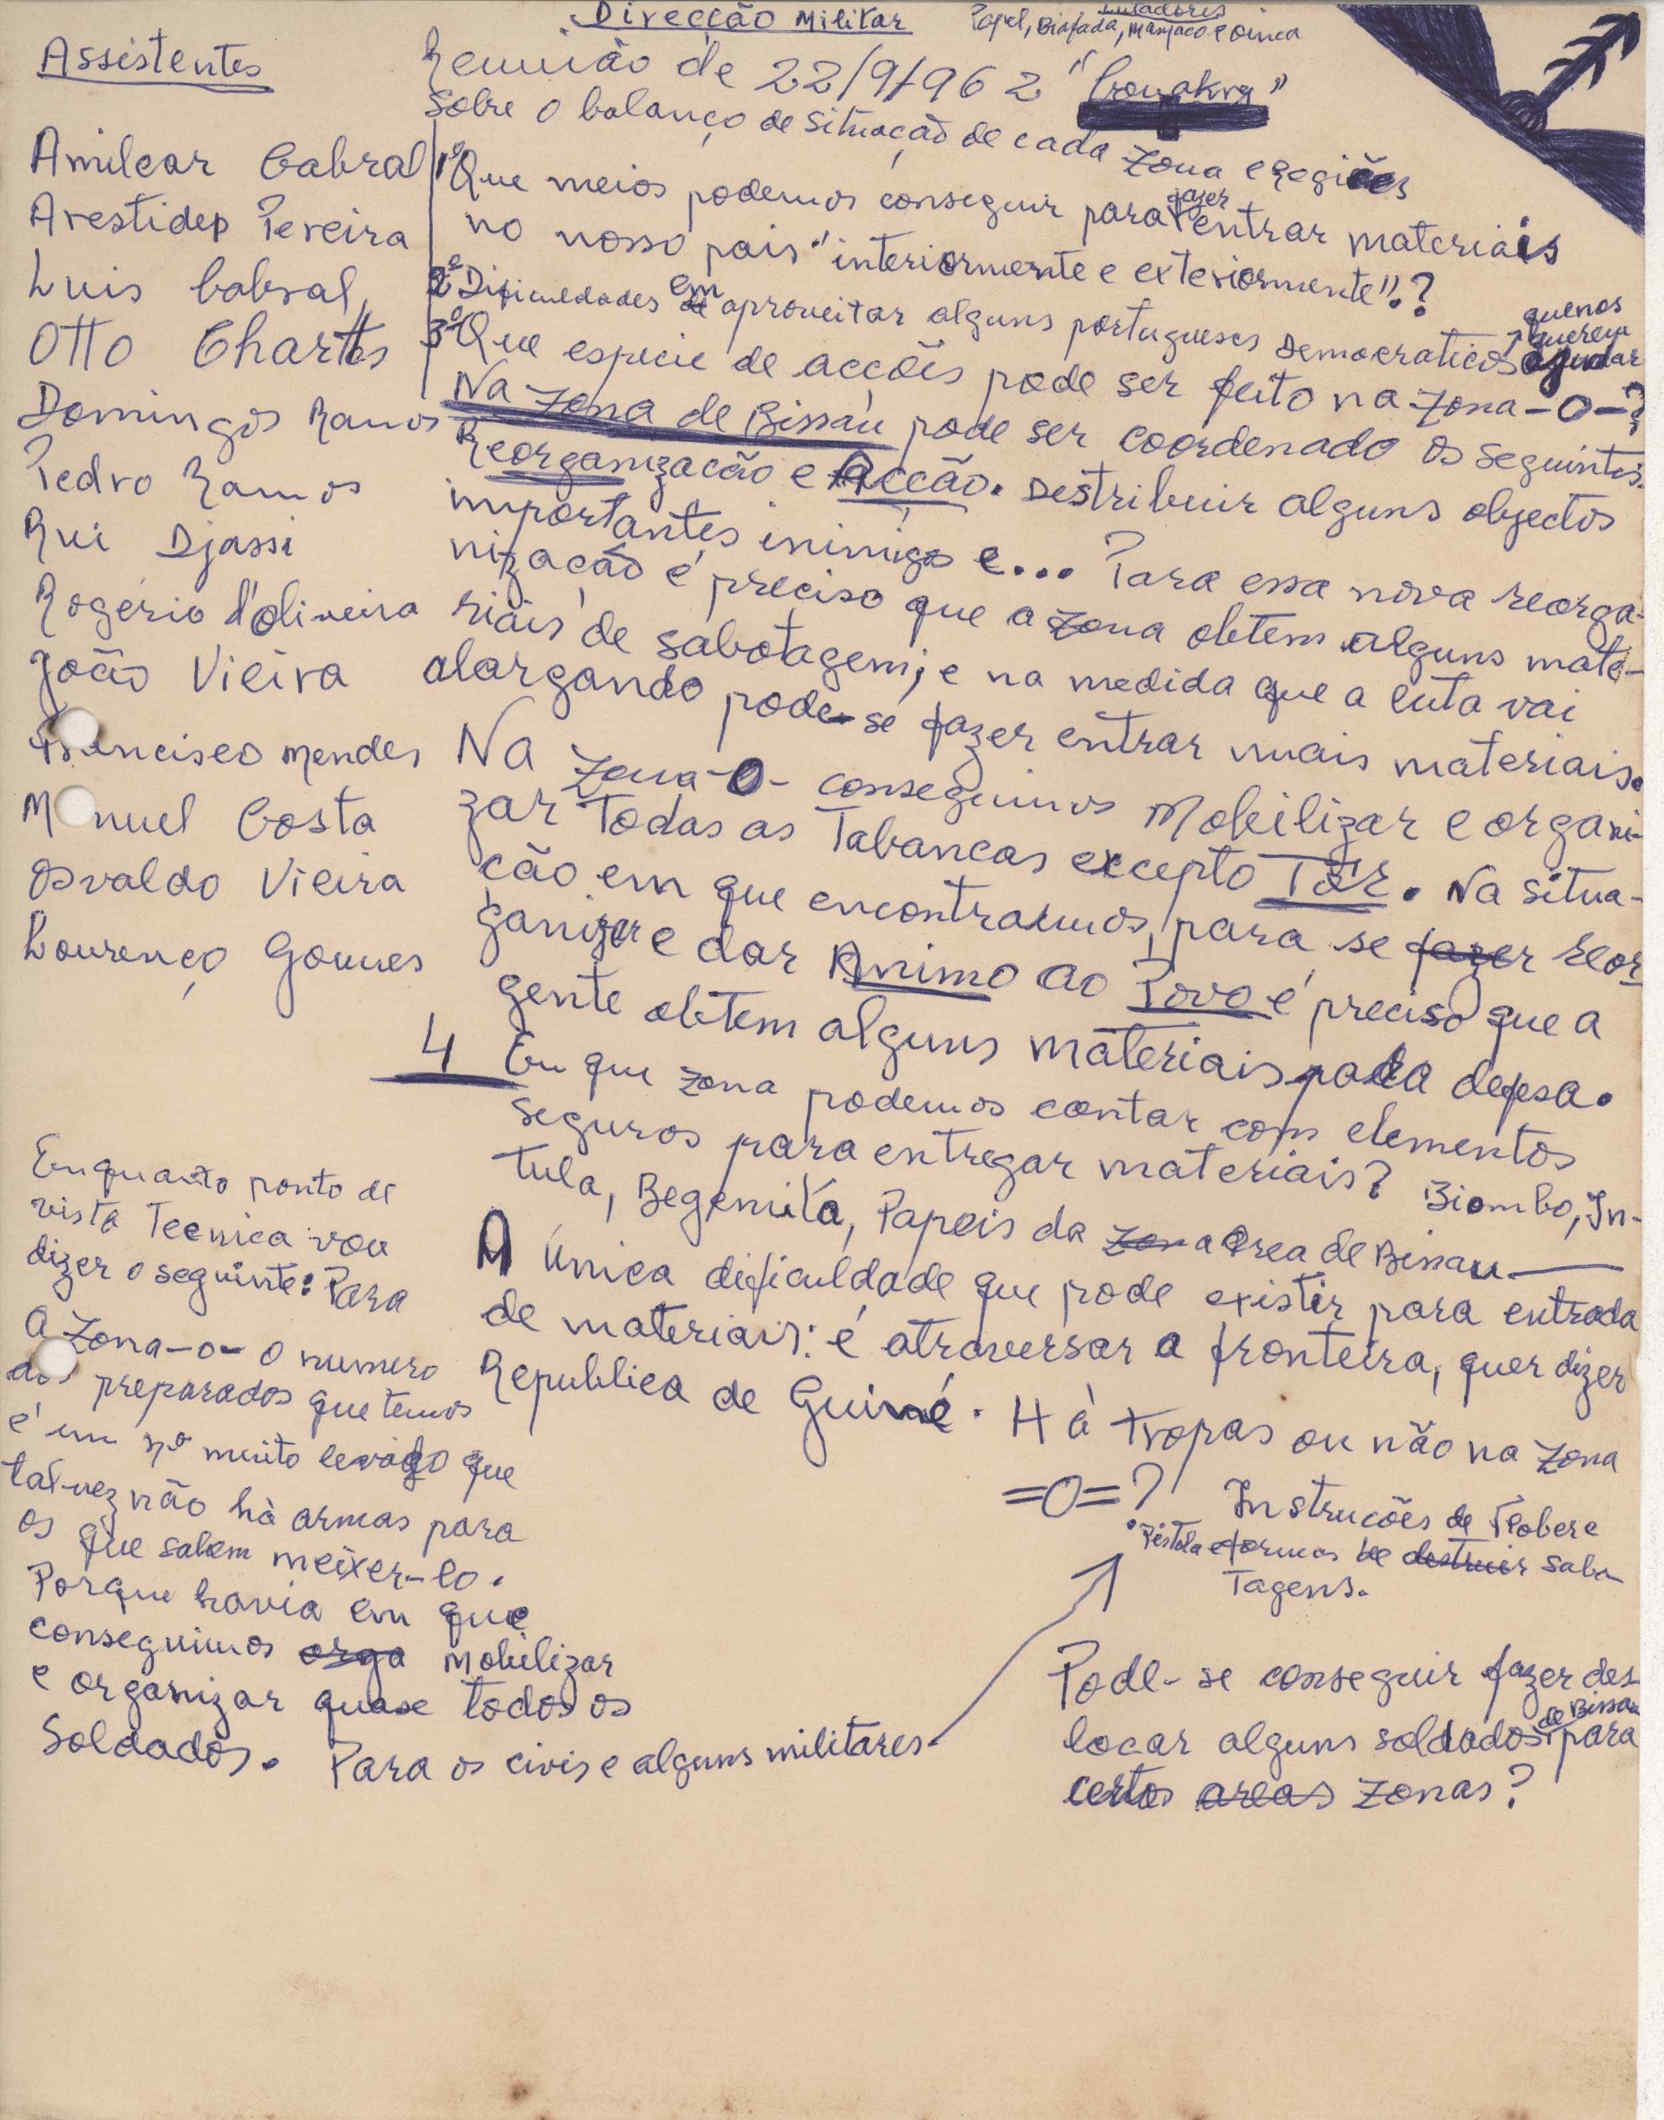 Direcção Militar
Lutadores
Papel, Biafada, Manjaco e Oinca
Assistentes
Amilcar Cabral
Arestides Pereira
Luis Cabral,
Otto Charttes
Domingos Ramos
Pedro Ramos
Rui Djassi
Rogério d'Oliveira
João Vieira
Francisco Mendes
Manuel Costa
Osvaldo Vieira
Lourenço Gomes
Reunião de 22/9/962 "Conakry"
Sobre o balanço de situação de cada zona e Regiões
1º Que meios podemos conseguir para fazer entrar materiais
no nosso pais "interiormente e exteriormente".?
2º Dificuldades em aproveitar alguns portugueses Democraticos, quenos querem ajudar
3º Que especie de acções pode ser feito na zona -O-?
Na zona de Bissau pode ser coordenado os seguintes.
Reorganização e Acção. Destribuir alguns objectos
importantes inimigos e... Para essa nova reorga-
nização é preciso que a zona obtem alguns mate-
riais de sabotagem; e na medida que a luta vai
alargando pode-se fazer entrar mais materiais.
Na zona-O- conseguimos Mobilizar e organi-
zar Todas as Tabancas excepto Tôr. Na situa-
ção em que encontramos, para se fazer reor
ganizar e dar Animo ao Povo é preciso que a
gente obtem alguns materiais para defesa.
4 Em que zona podemos contar com elementos
seguros para entregar materiais? Biombo, In-
tula, Begemita, Papeis da zona area de Bissau
A única dificuldade que pode existir para entrada
de materiais: é atraversar a fronteira, quer dizer
Republica de Guiné. Há tropas ou não na zona
=O=?
Instrucões de Flober e
Pistola e formas de destruir sabo
Tagens.
Pode-se conseguir fazer des
locar alguns soldados de Bissau para
certos areas zonas?
Enquanto ponto de
vista Tecnica vou
dizer o seguinte: Para
a zona-o- o numero
dos preparados que temos
é um nº muito levado que
tal-vez não há armas para
os que sabem meixer-lo.
Porque havia em que
conseguimos orga Mobilizar
e organizar quase todos os
Soldados. Para os civis e alguns militares